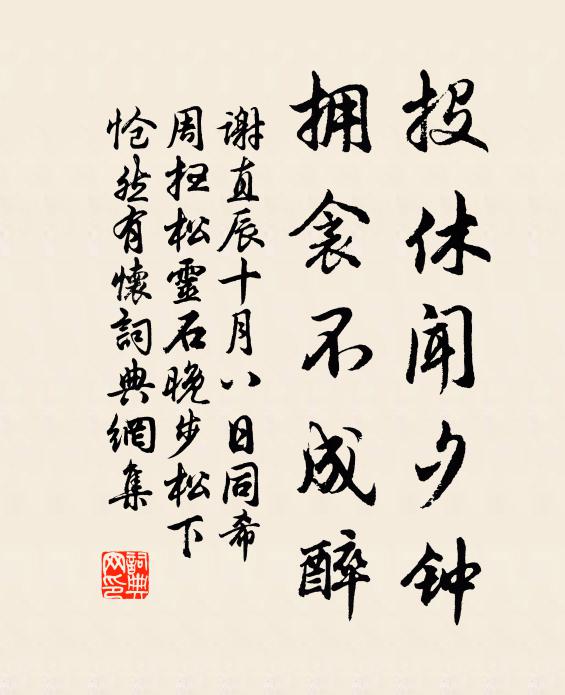 投休闻夕钟
拥衾不成醉
謝直辰十月八日同希
周扫松靈石晚步松下
怆然有懷詞典網集
詞典
网印